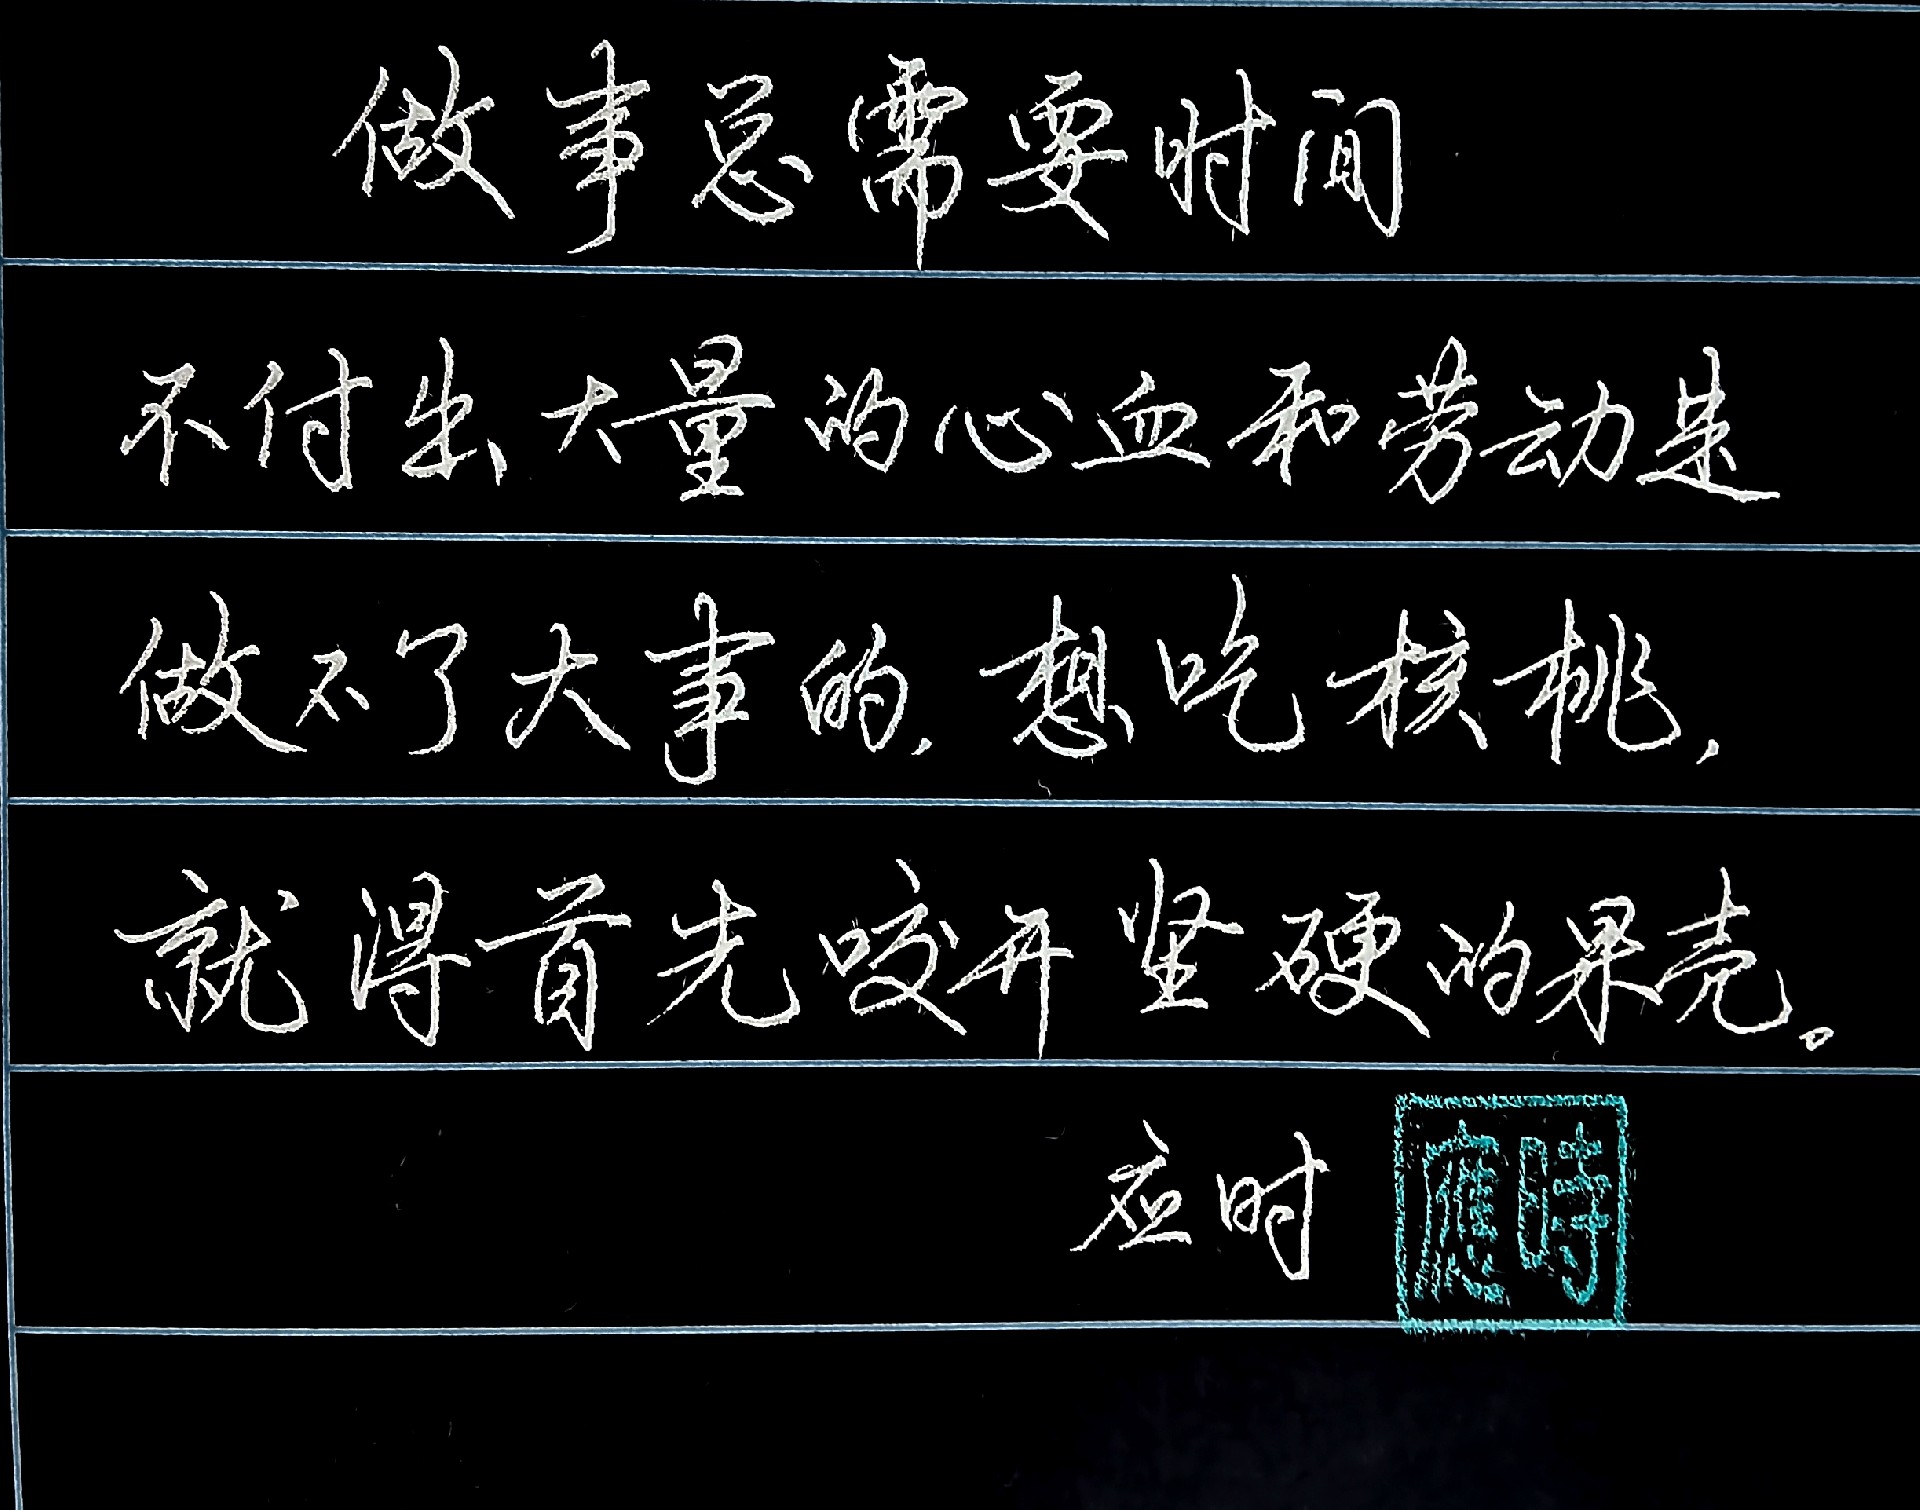 做事总需要时间
不付出大量的心血和劳动是
做不了大事的，想吃核桃，
就得首先咬开坚硬的果壳。
应时 應時